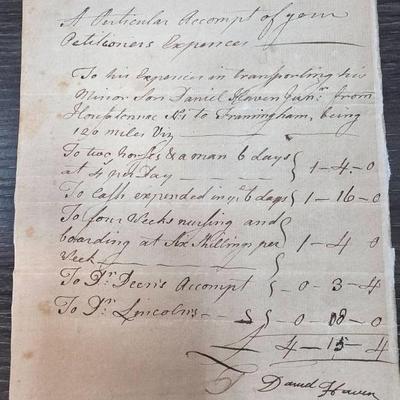 A Perticular Accompt of your
Petitioners Expences
To his Expences in transporting his
Minor Son Daniel Haven Junr. from
Housetennec No. 1 to Framingham, being
120 miles Viz
To two horses & a man 6 days
at 4 per Day — 1-4-0
To Cash expended in ye. 6 days 1-16-0
To four Weeks nursing and
boarding at Six Shillings per 1-4 0
Week
To Dr. Deens Accompt - 0-3-4
To Dr. Lincolns - 0-08-0
4-15-4
Daniel Haven